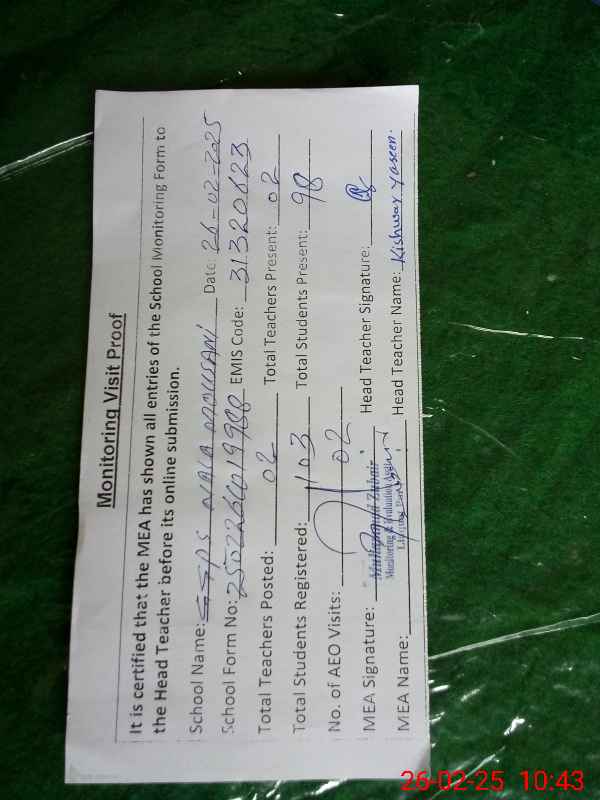 Monitoring Visit Proof
It is certified that the MEA has shown all entries of the School Monitoring Form to
the Head Teacher before its online submission.
School Name: GGPS NALA MOHSANI Date: 26-02-2025
School Form No: EMIS Code: 31320623
Total Teachers Posted: 02 Total Teachers Present: 02
Total Students Registered: 103 Total Students Present: 98
No. of AEO Visits: 02
MEA Signature: Muhammad Zubair Head Teacher Signature:
Monitoring & Evaluation
MEA Name: Head Teacher Name: Kishwar Yaseen.
26-02-25 10:43